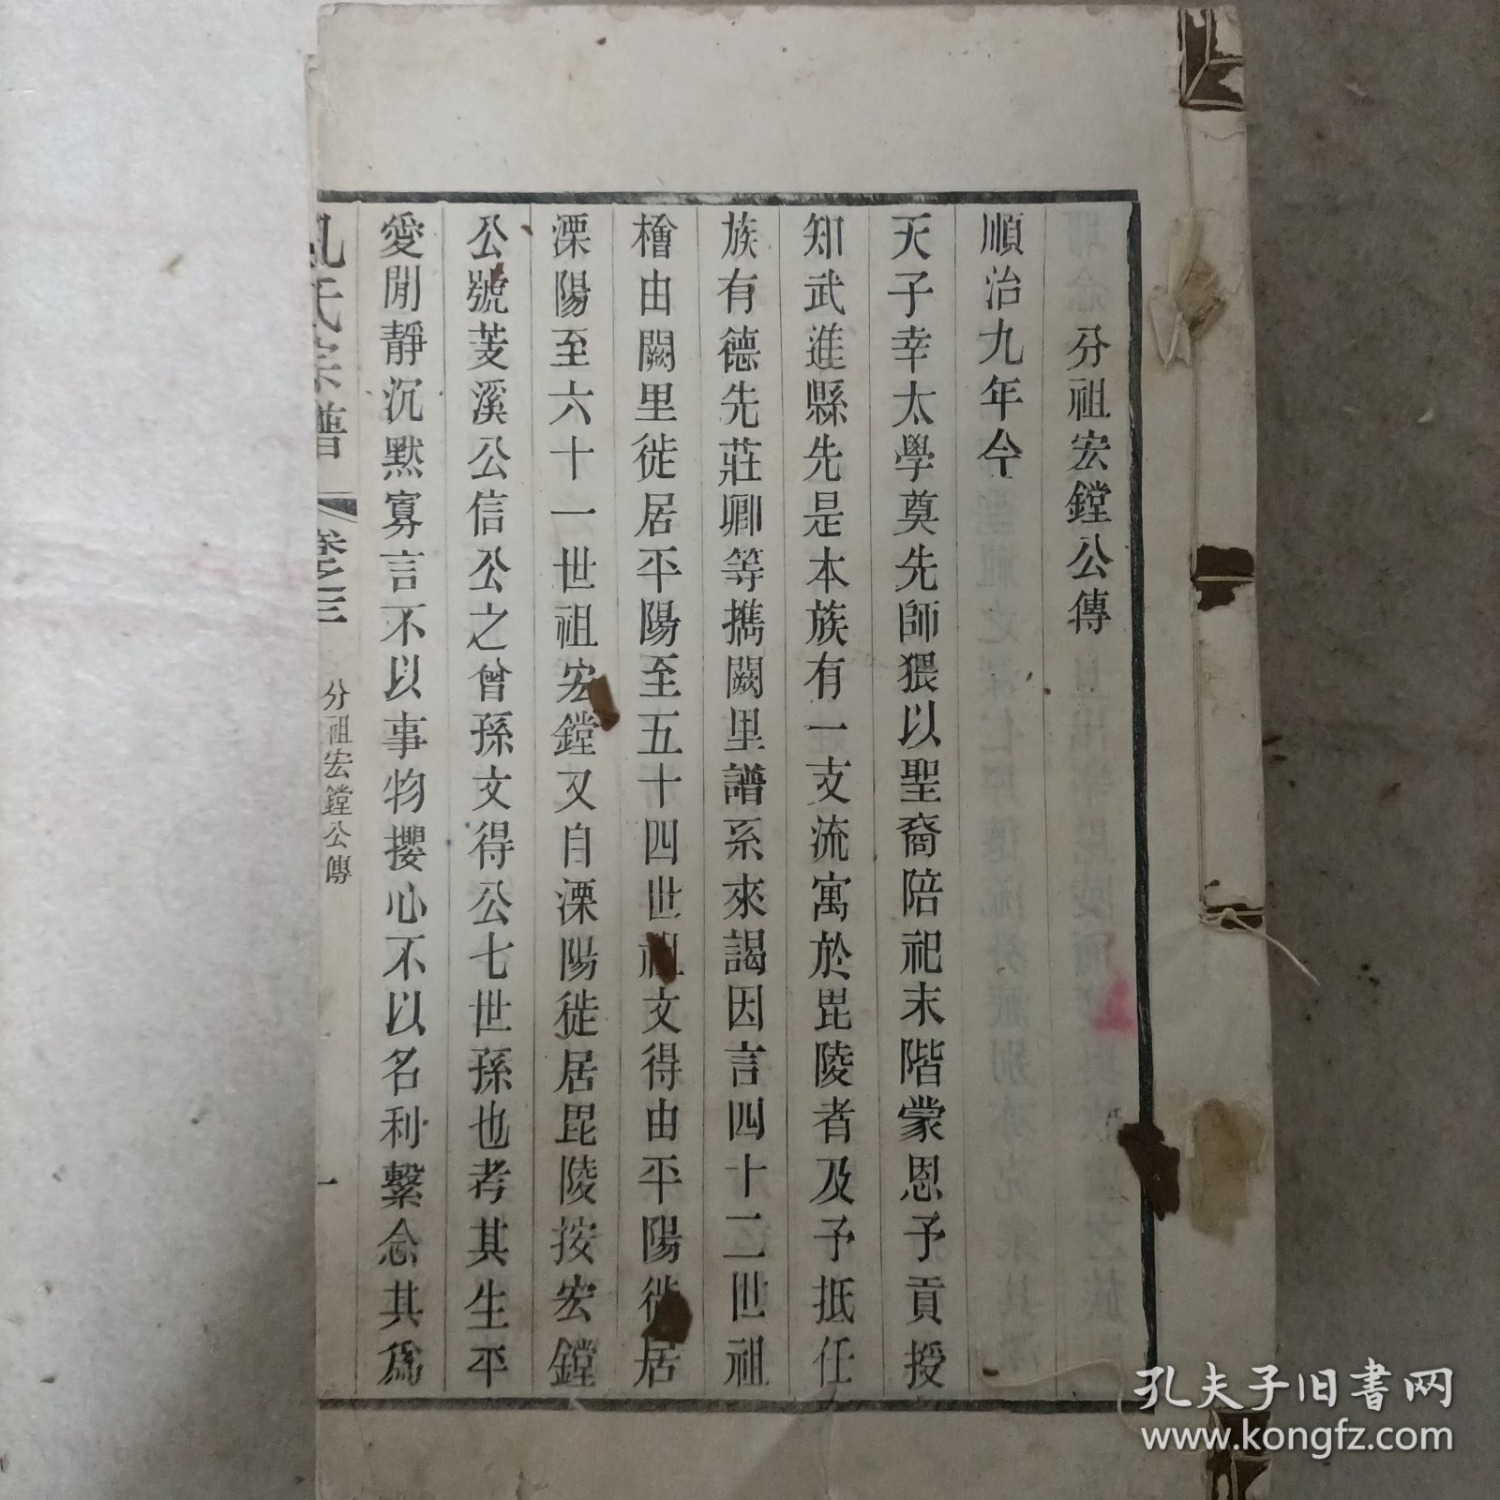 分祖宏鏜公傳
順治九年今
天子幸太學奠先師猥以聖裔陪祀末階蒙恩予貢授
知武進縣先是本族有一支流寓於毘陵者及予抵任
族有德先莊卿等攜闕里譜系來謁因言四十二世祖
檜由闕里徙居平陽至五十四世祖文得由平陽徙居
溧陽至六十一世祖宏鏜又自溧陽徙居毘陵按宏鏜
公號芰溪公信公之曾孫文得公七世孫也考其生平
愛閒靜沉默寡言不以事物攖心不以名利繫念其爲
孔氏宗譜
卷之三
分祖宏鏜公傳
一
孔夫子旧書网
www.kongfz.com